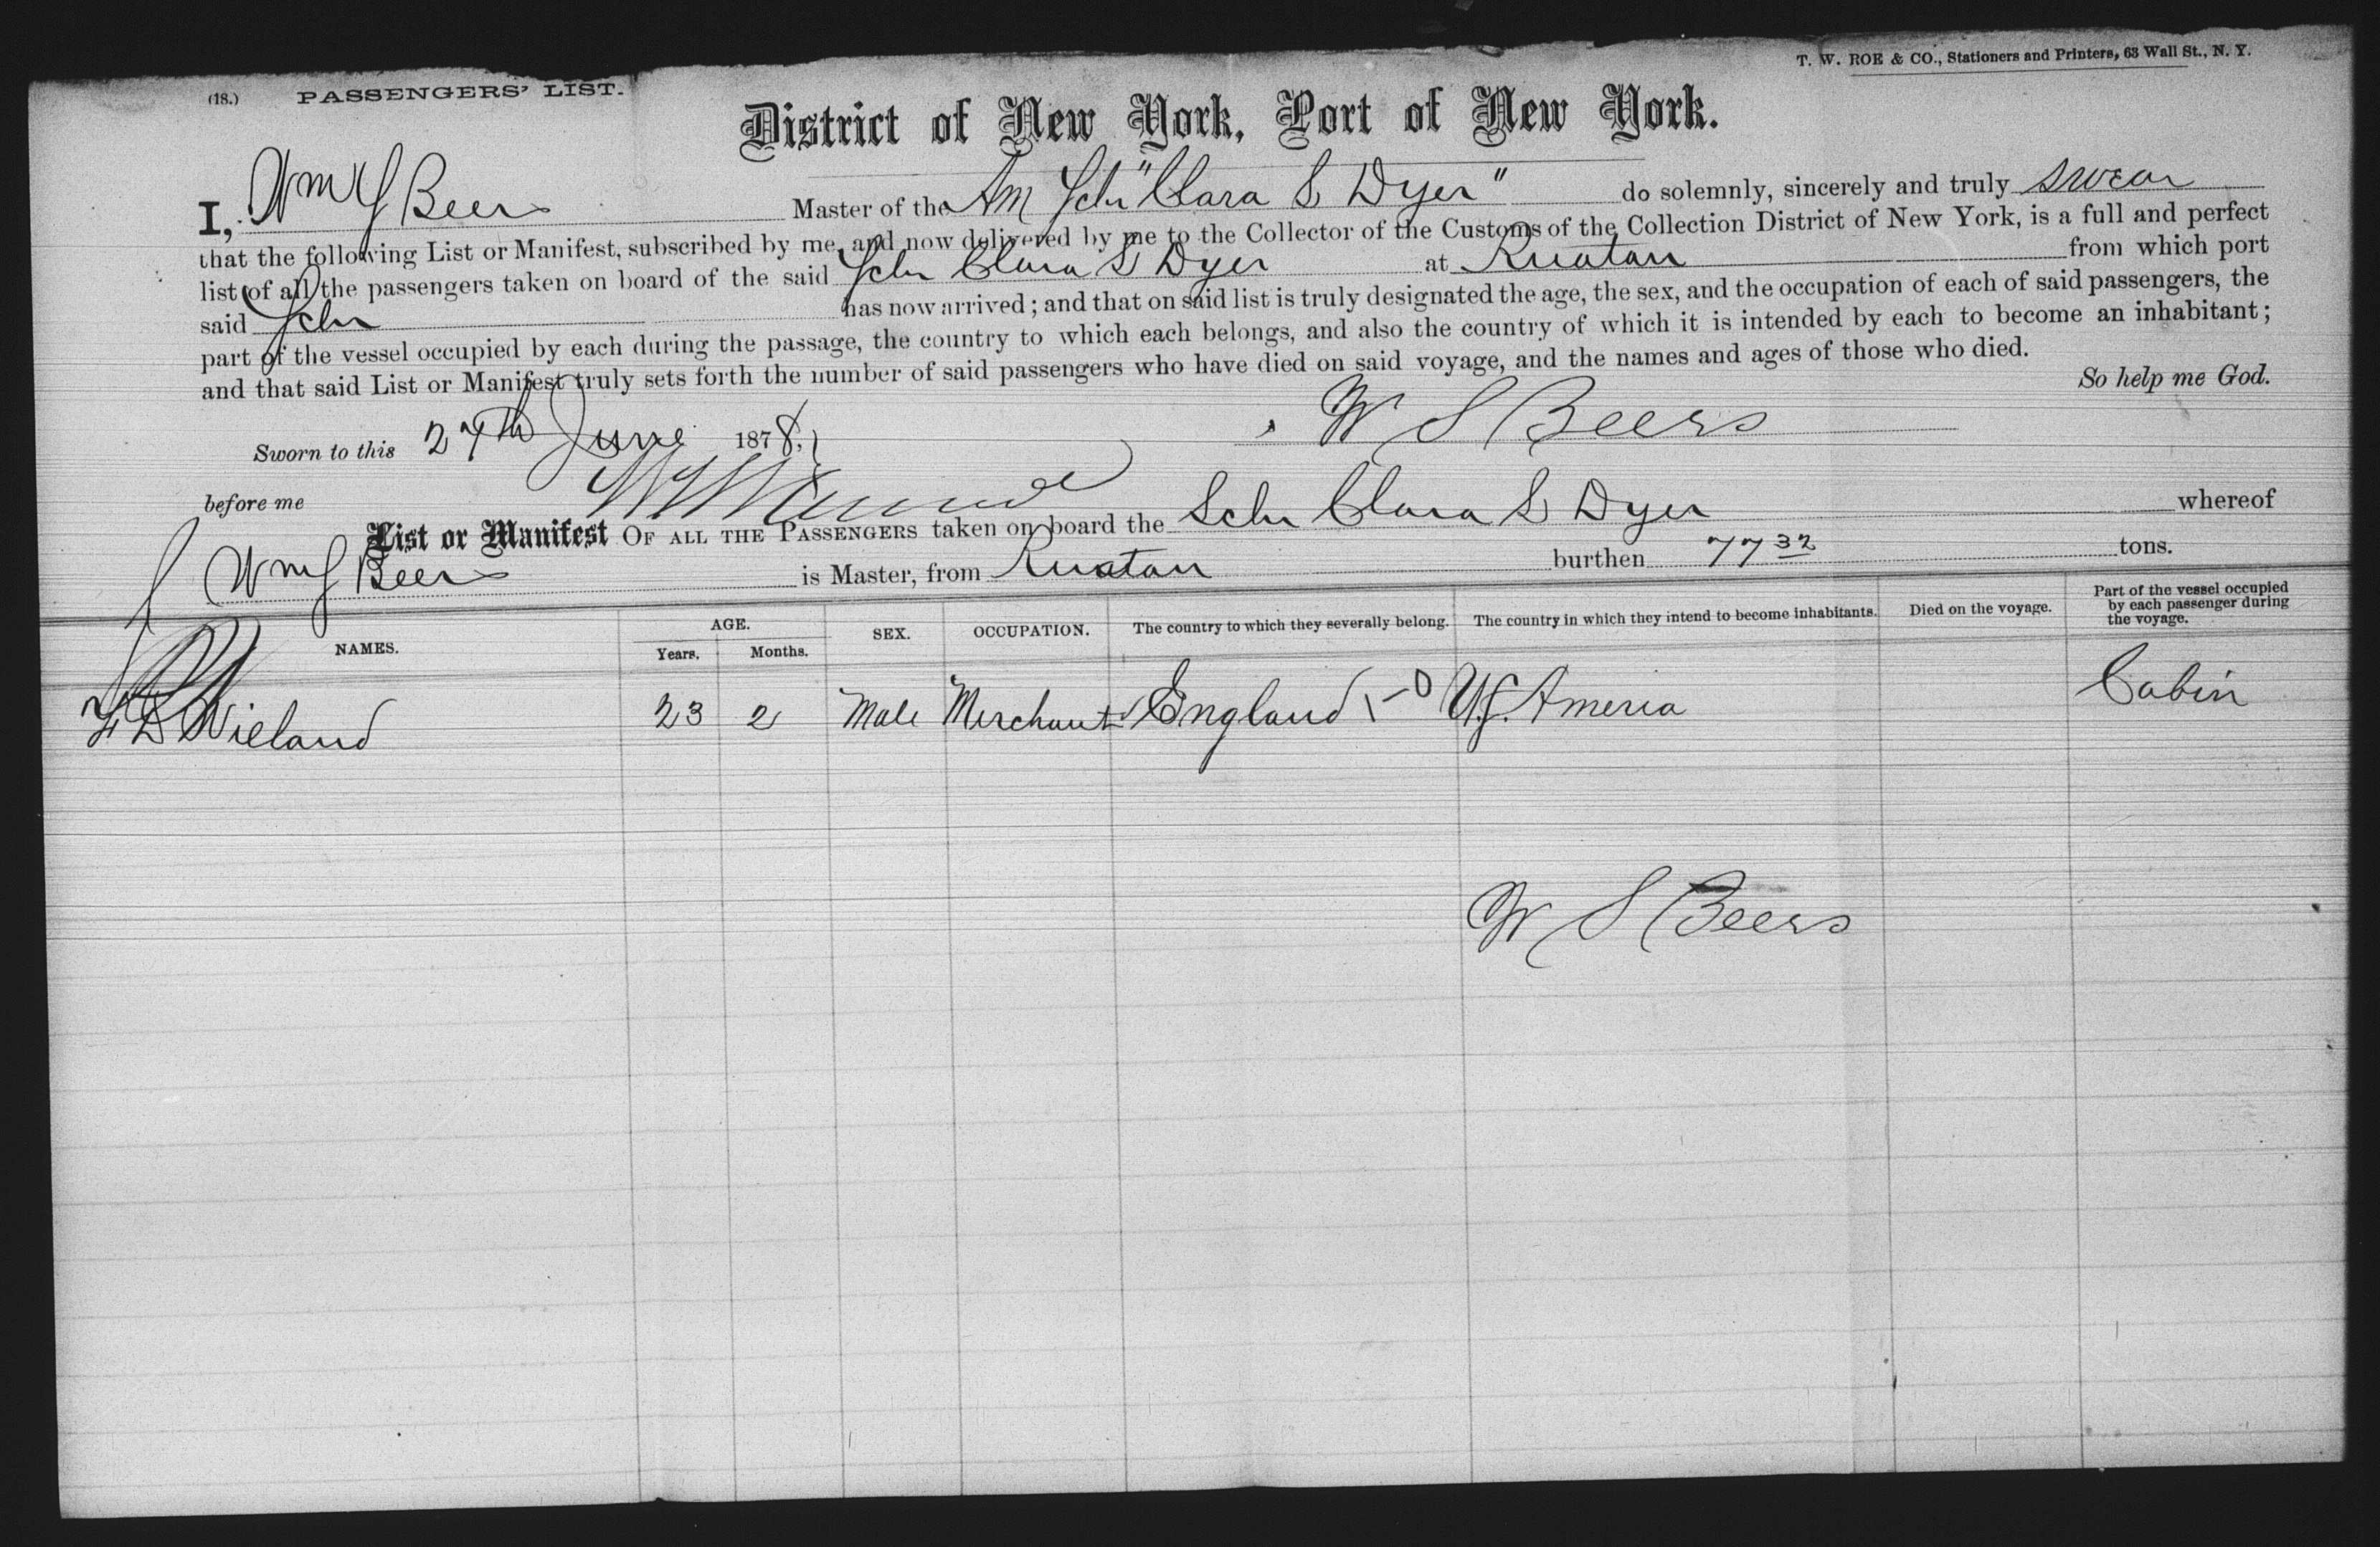 T. W. ROE & CO., Stationers and Printers, 63 Wall St., N. Y.
(18.) PASSENGERS' LIST.
District of New York, Port of New York.
I, Wm S Beers Master of the Am Schr "Clara L Dyer" do solemnly, sincerely and truly swear
that the following List or Manifest, subscribed by me, and now delivered by me to the Collector of the Customs of the Collection District of New York, is a full and perfect
list of all the passengers taken on board of the said Schr Clara L Dyer at Ruatan from which port
said Schr has now arrived; and that on said list is truly designated the age, the sex, and the occupation of each of said passengers, the
part of the vessel occupied by each during the passage, the country to which each belongs, and also the country of which it is intended by each to become an inhabitant;
and that said List or Manifest truly sets forth the number of said passengers who have died on said voyage, and the names and ages of those who died.
So help me God.
Sworn to this 27th June 1878, W S Beers
before me
List or Manifest OF ALL THE PASSENGERS taken on board the Schr Clara L Dyer whereof
Wm S Beers is Master, from Ruatan burthen 77 32 tons.
NAMES. AGE. Years. Months. SEX. OCCUPATION. The country to which they severally belong. The country in which they intend to become inhabitants. Died on the voyage. Part of the vessel occupied by each passenger during the voyage.
Wieland 23 2 Male Merchant England U.S. Ameria Cabin
W S Beers